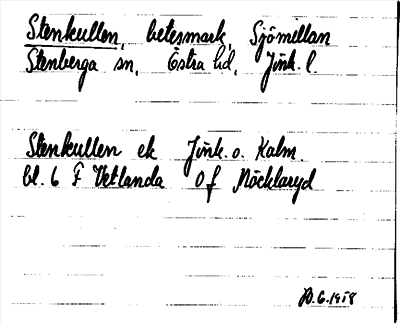 Stenkullen, betesmark, Sjömillan
Stenberga sn, Östra hd, Jönk. l.
Stenkullen ek Jönk. o. Kalm.
bl. 6 F Vetlanda 0f Nöcklaryd
6.1958